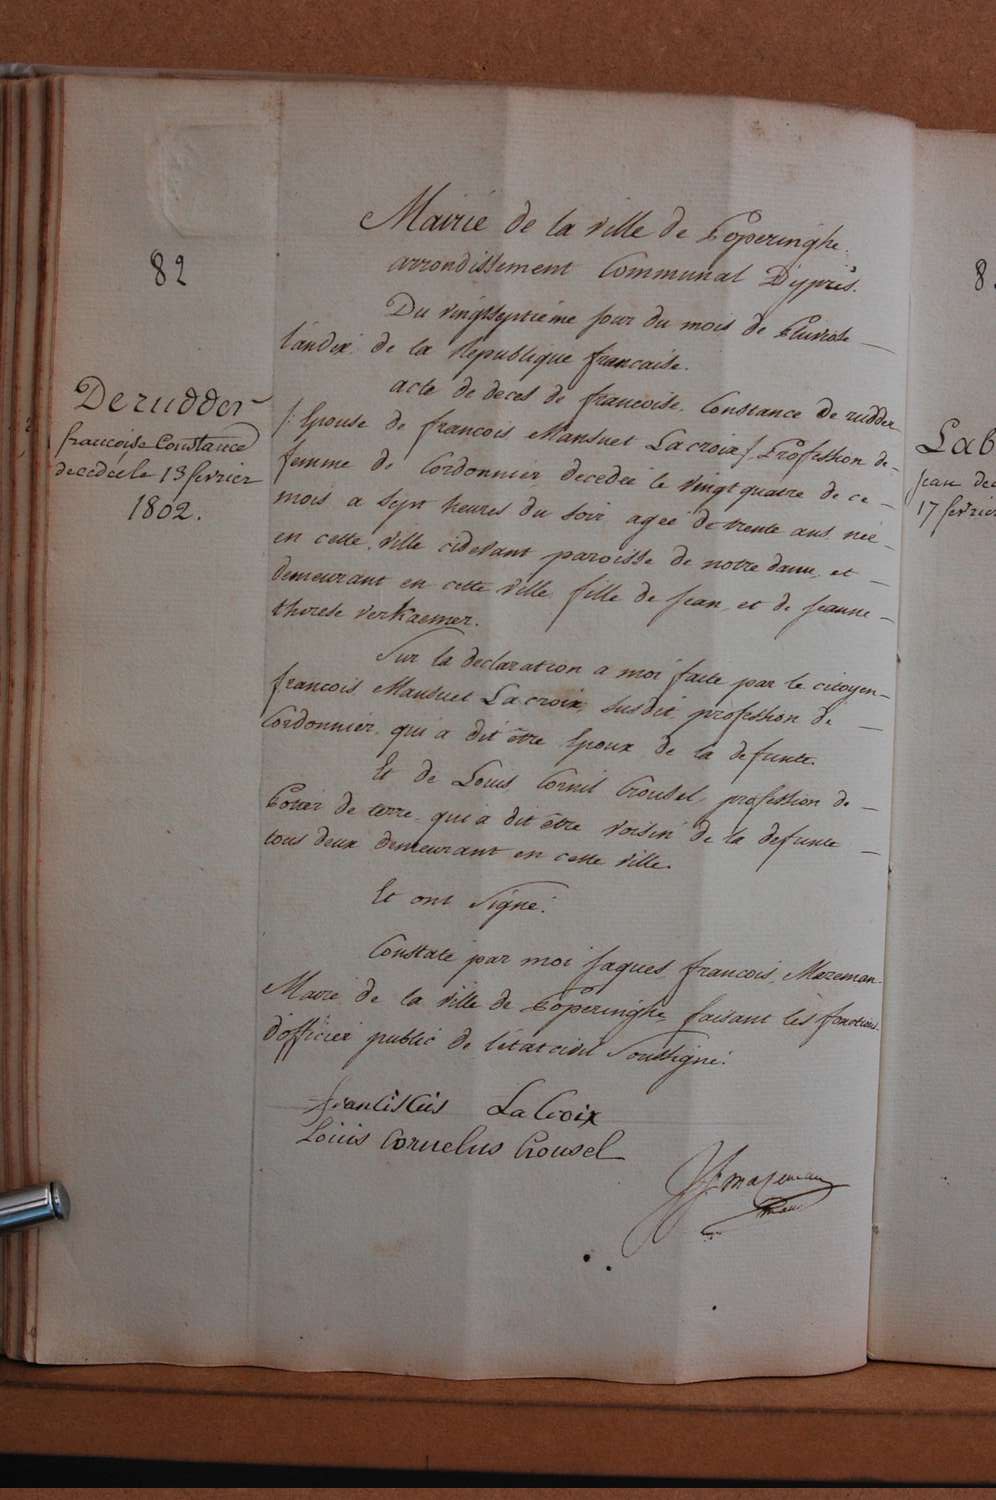 82
Derudder
francoise Constance
decedée le 13 fevrier
1802.
Mairie de la ville de Poperinghe.
arrondissement Communal D'ypres.
Du vingtseptiéme jour du mois de Pluviose
l'an dix de la Republique francaise.
acte de deces de francoise Constance De rudder
/: Epouse de francois Mansuet Lacroix :/ Profession de
femme de Cordonnier, decedée le vingt quatre de ce
mois a sept heures du soir agée de trente ans née
en cette ville cidevant paroisse de notre dame, et
demeurant en cette ville fille de jean et de jeanne
therese verkaemer.
Sur la declaration a moi faite par le citoyen
francois Mansuet Lacroix, susdit, profession de
Cordonnier qui a dit être Epoux de la defunte.
Et de Louis Cornil Crousel, profession de
Potier de terre qui a dit être voisin de la defunte
tous deux demeurant en cette ville.
Et ont Signé:
Constaté par moi jaques francois Mazeman
Maire de la ville de Poperinghe faisant les fonctions
d'officier public de l'état civil Soussigné:
franciscus LaCroix
Louis Cornelus Crousel
JF mazeman
maire
8
Lab
jean dec
17 fevrier